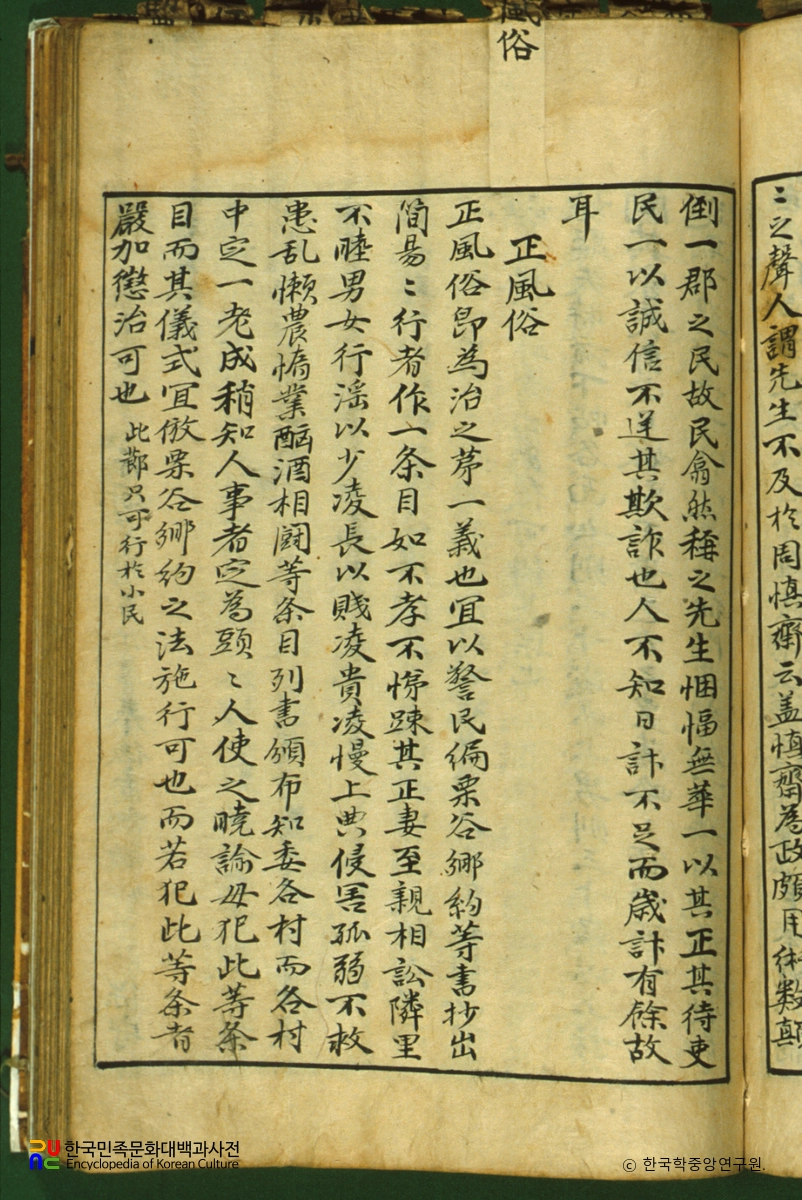 風俗
〻之聲人謂先生不及於周慎齋云盖慎齋為政頗用術數顛
倒一郡之民故民翕然稱之先生悃愊無華一以其正其待吏
民一以誠信不逆其欺詐也人不知日計不足而歲計有餘故
耳
正風俗
正風俗卽為治之苐一義也宜以警民編栗谷鄉約等書抄出
簡易〻行者作一条目如不孝不悌踈其正妻至親相訟隣里
不睦男女行淫以少凌長以賤凌貴凌慢上典侵害孤弱不救
患乱懶農惰業酗酒相鬪等条目列書頒布知委各村而各村
中定一老成稍知人事者定為頭〻人使之曉諭毋犯此等条
目而其儀式宜倣栗谷鄉約之法施行可也而若犯此等条者
嚴加懲治可也 此節只可行於小民
한국민족문화대백과사전
Encyclopedia of Korean Culture
ⓒ 한국학중앙연구원.